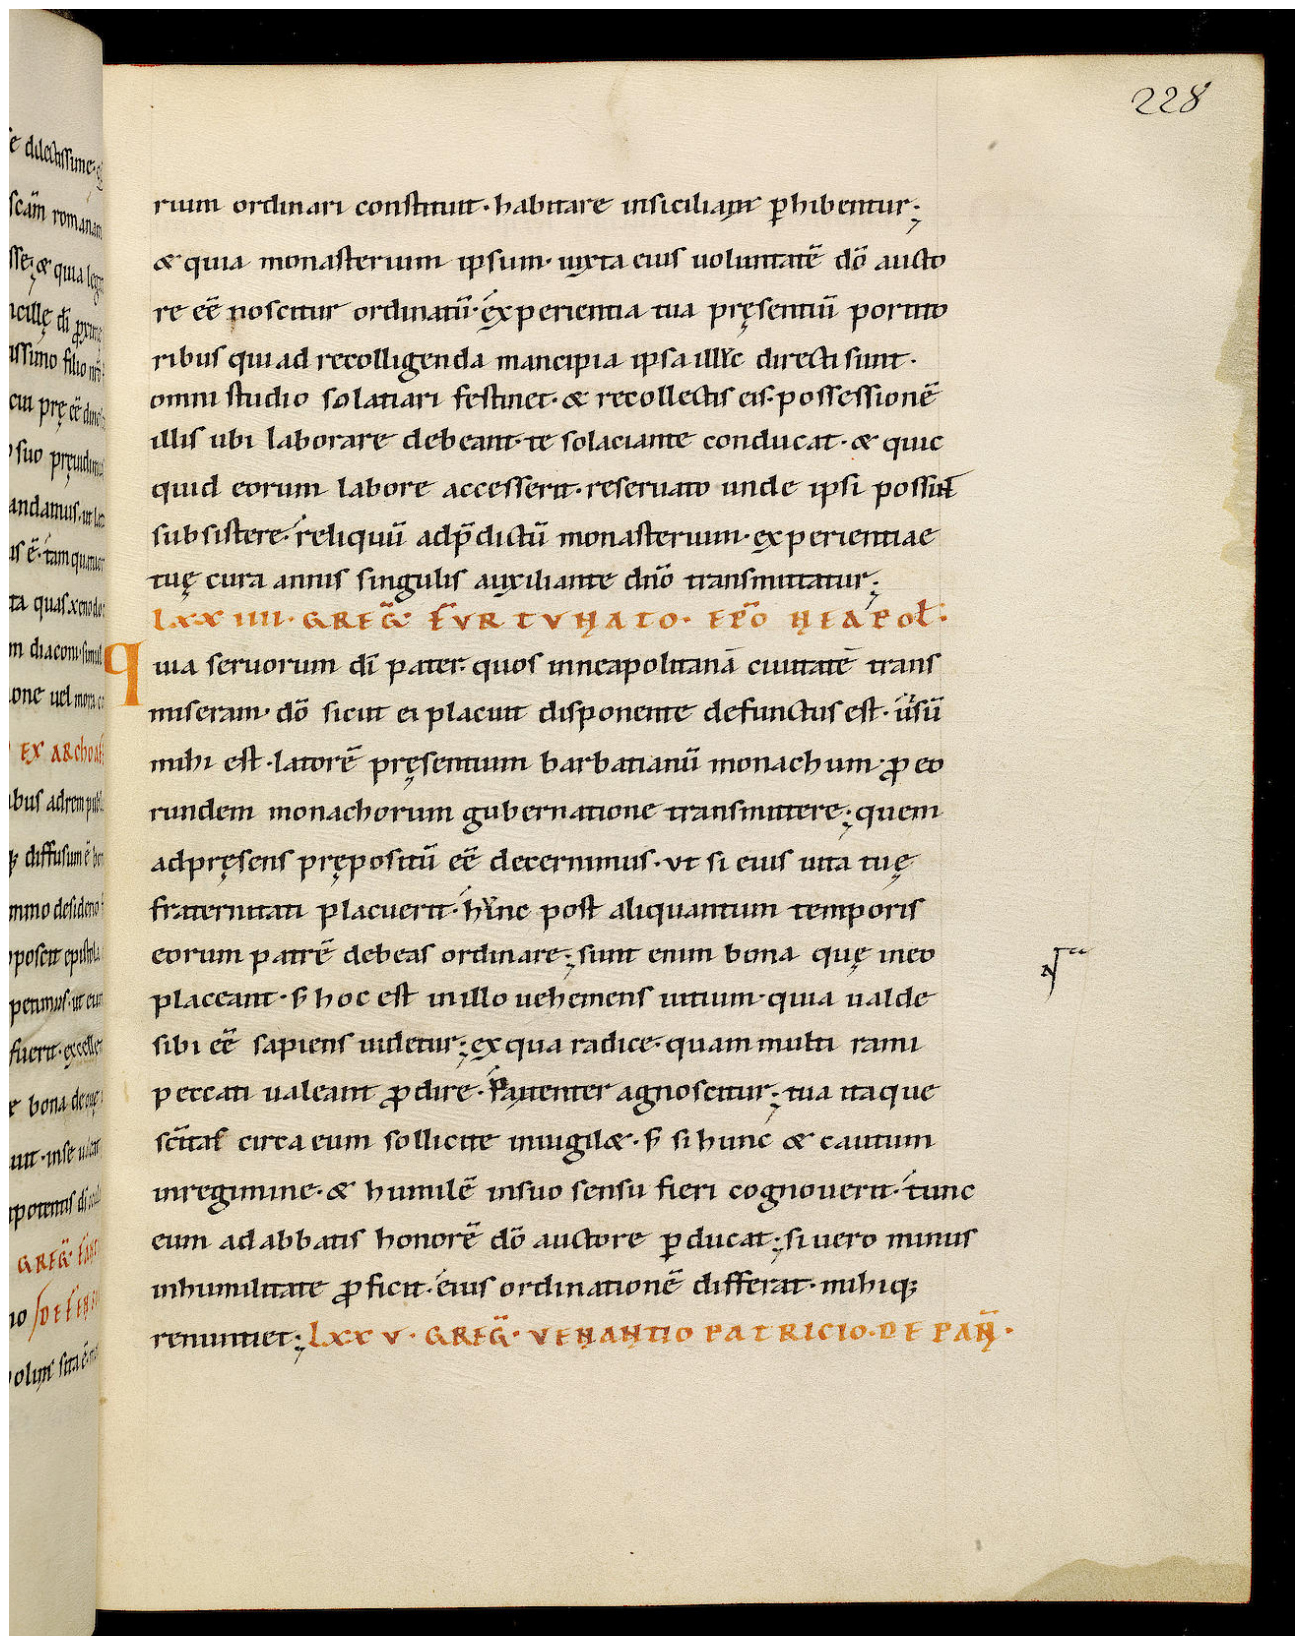 228
rium ordinari constituit · habitare insiciliam p̱hibentur;
& quia monasterium ipsum · iuxta eius uoluntatē dō aucto
re eē noscitur ordinatū · experientia tua pręsentiū portito
ribus qui ad recolligenda mancipia ipsa illic directi sunt ·
omni studio solatiari festinet · & recollectis eis · possessionē
illis ubi laborare debeant · te solaciante conducat · & quic
quid eorum labore accesserit · reseruato unde ipsi possint
subsistere · reliquū adp̄dictū monasterium · experientiae
tuę cura annis singulis auxiliante dnō transmittatur;
LXXIIII · GREG̅ · FVRTVNATO · EP̅O NEAPOŁ ·
quia seruorum dī pater · quos inneapolitanā ciuitatē trans
miseram · dō sicut ei placuit disponente defunctus est · uisū
mihi est · latorē pręsentium barbatianū monachum · ꝓ eo
rundem monachorum gubernatione transmittere; quem
adpręsens prępositū eē decernimus · vt si eius uita tuę
fraternitati placuerit · hunc post aliquantum temporis
eorum patrē debeas ordinare; sunt enim bona quę ineo
placeant · s̄ hoc est inillo uehemens uitium · quia ualde
sibi eē sapiens uidetur; ex qua radice · quam multi rami
peccati ualeant ꝓdire · patenter agnoscitur; tua itaque
sc̄itas circa eum sollicite inuigil& · s̄ si hunc & cautum
inregimine · & humilē insuo sensu fieri cognouerit · tunc
eum ad abbatis honorē dō auctore ꝑducat; si uero minus
inhumilitate ꝓficit · eius ordinationē differat · mihiq;
renuntiet; LXXV · GREG̅ · VENANTIO PATRICIO · DE PAN̅ ·